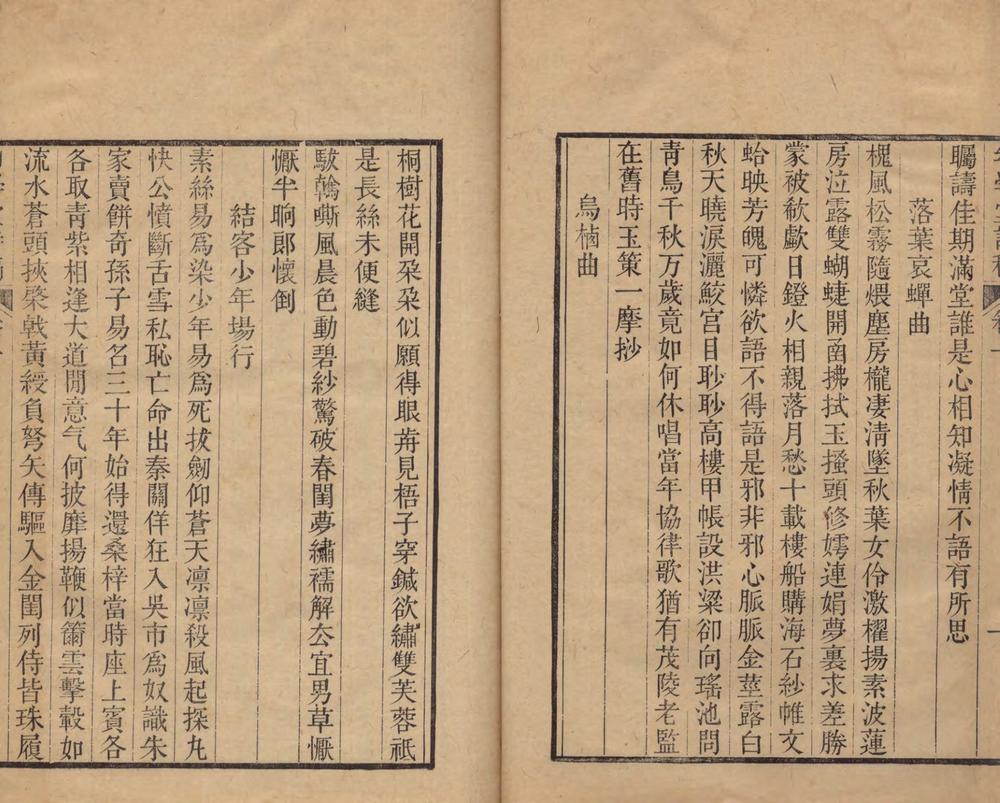 矚譸佳期滿堂誰是心相知凝情不語有所思
落葉哀蟬曲
槐風松霧隨煨塵房櫳淒清墜秋葉女伶激櫂揚素波蓮
房泣露雙蝴蜨開函拂拭玉搔頭修嫮連娟夢裏求差勝
蒙被欷歔日鐙火相親落月愁十載樓船購海石紗帷文
蛤映芳魄可憐欲語不得語是邪非邪心脈脈金莖露白
秋天曉淚灑鮫宮目眇眇高樓甲帳設洪梁卻向瑤池問
靑鳥千秋万歲竟如何休唱當年協律歌猶有茂陵老監
在舊時玉策一摩挱
烏樠曲
桐樹花開朶朶似願得眼歬見梧子穿鍼欲繡雙芙蓉祇
是長絲未便縫
駊騲嘶風晨色動碧紗驚破春閨夢繡襦解厺宜男草懨
懨半晌郎懷倒
結客少年場行
素絲易爲染少年易爲死拔劒仰蒼天凛凛殺風起探丸
快公憤斷舌雪私恥亡命出秦關佯狂入吳市爲奴識朱
家賣餅奇孫子易名三十年始得還桑梓當時座上賓各
各取靑紫相逢大道閒意气何披靡揚鞭似籋雲擊轂如
流水蒼頭挾棨戟黃綬負弩矢傳驅入金閨列侍皆珠履